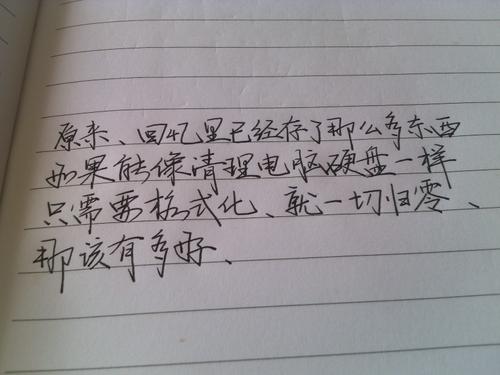 原来、回忆里已经存了那么多东西
如果能像清理电脑硬盘一样
只需要格式化、就一切归零、
那该有多好、